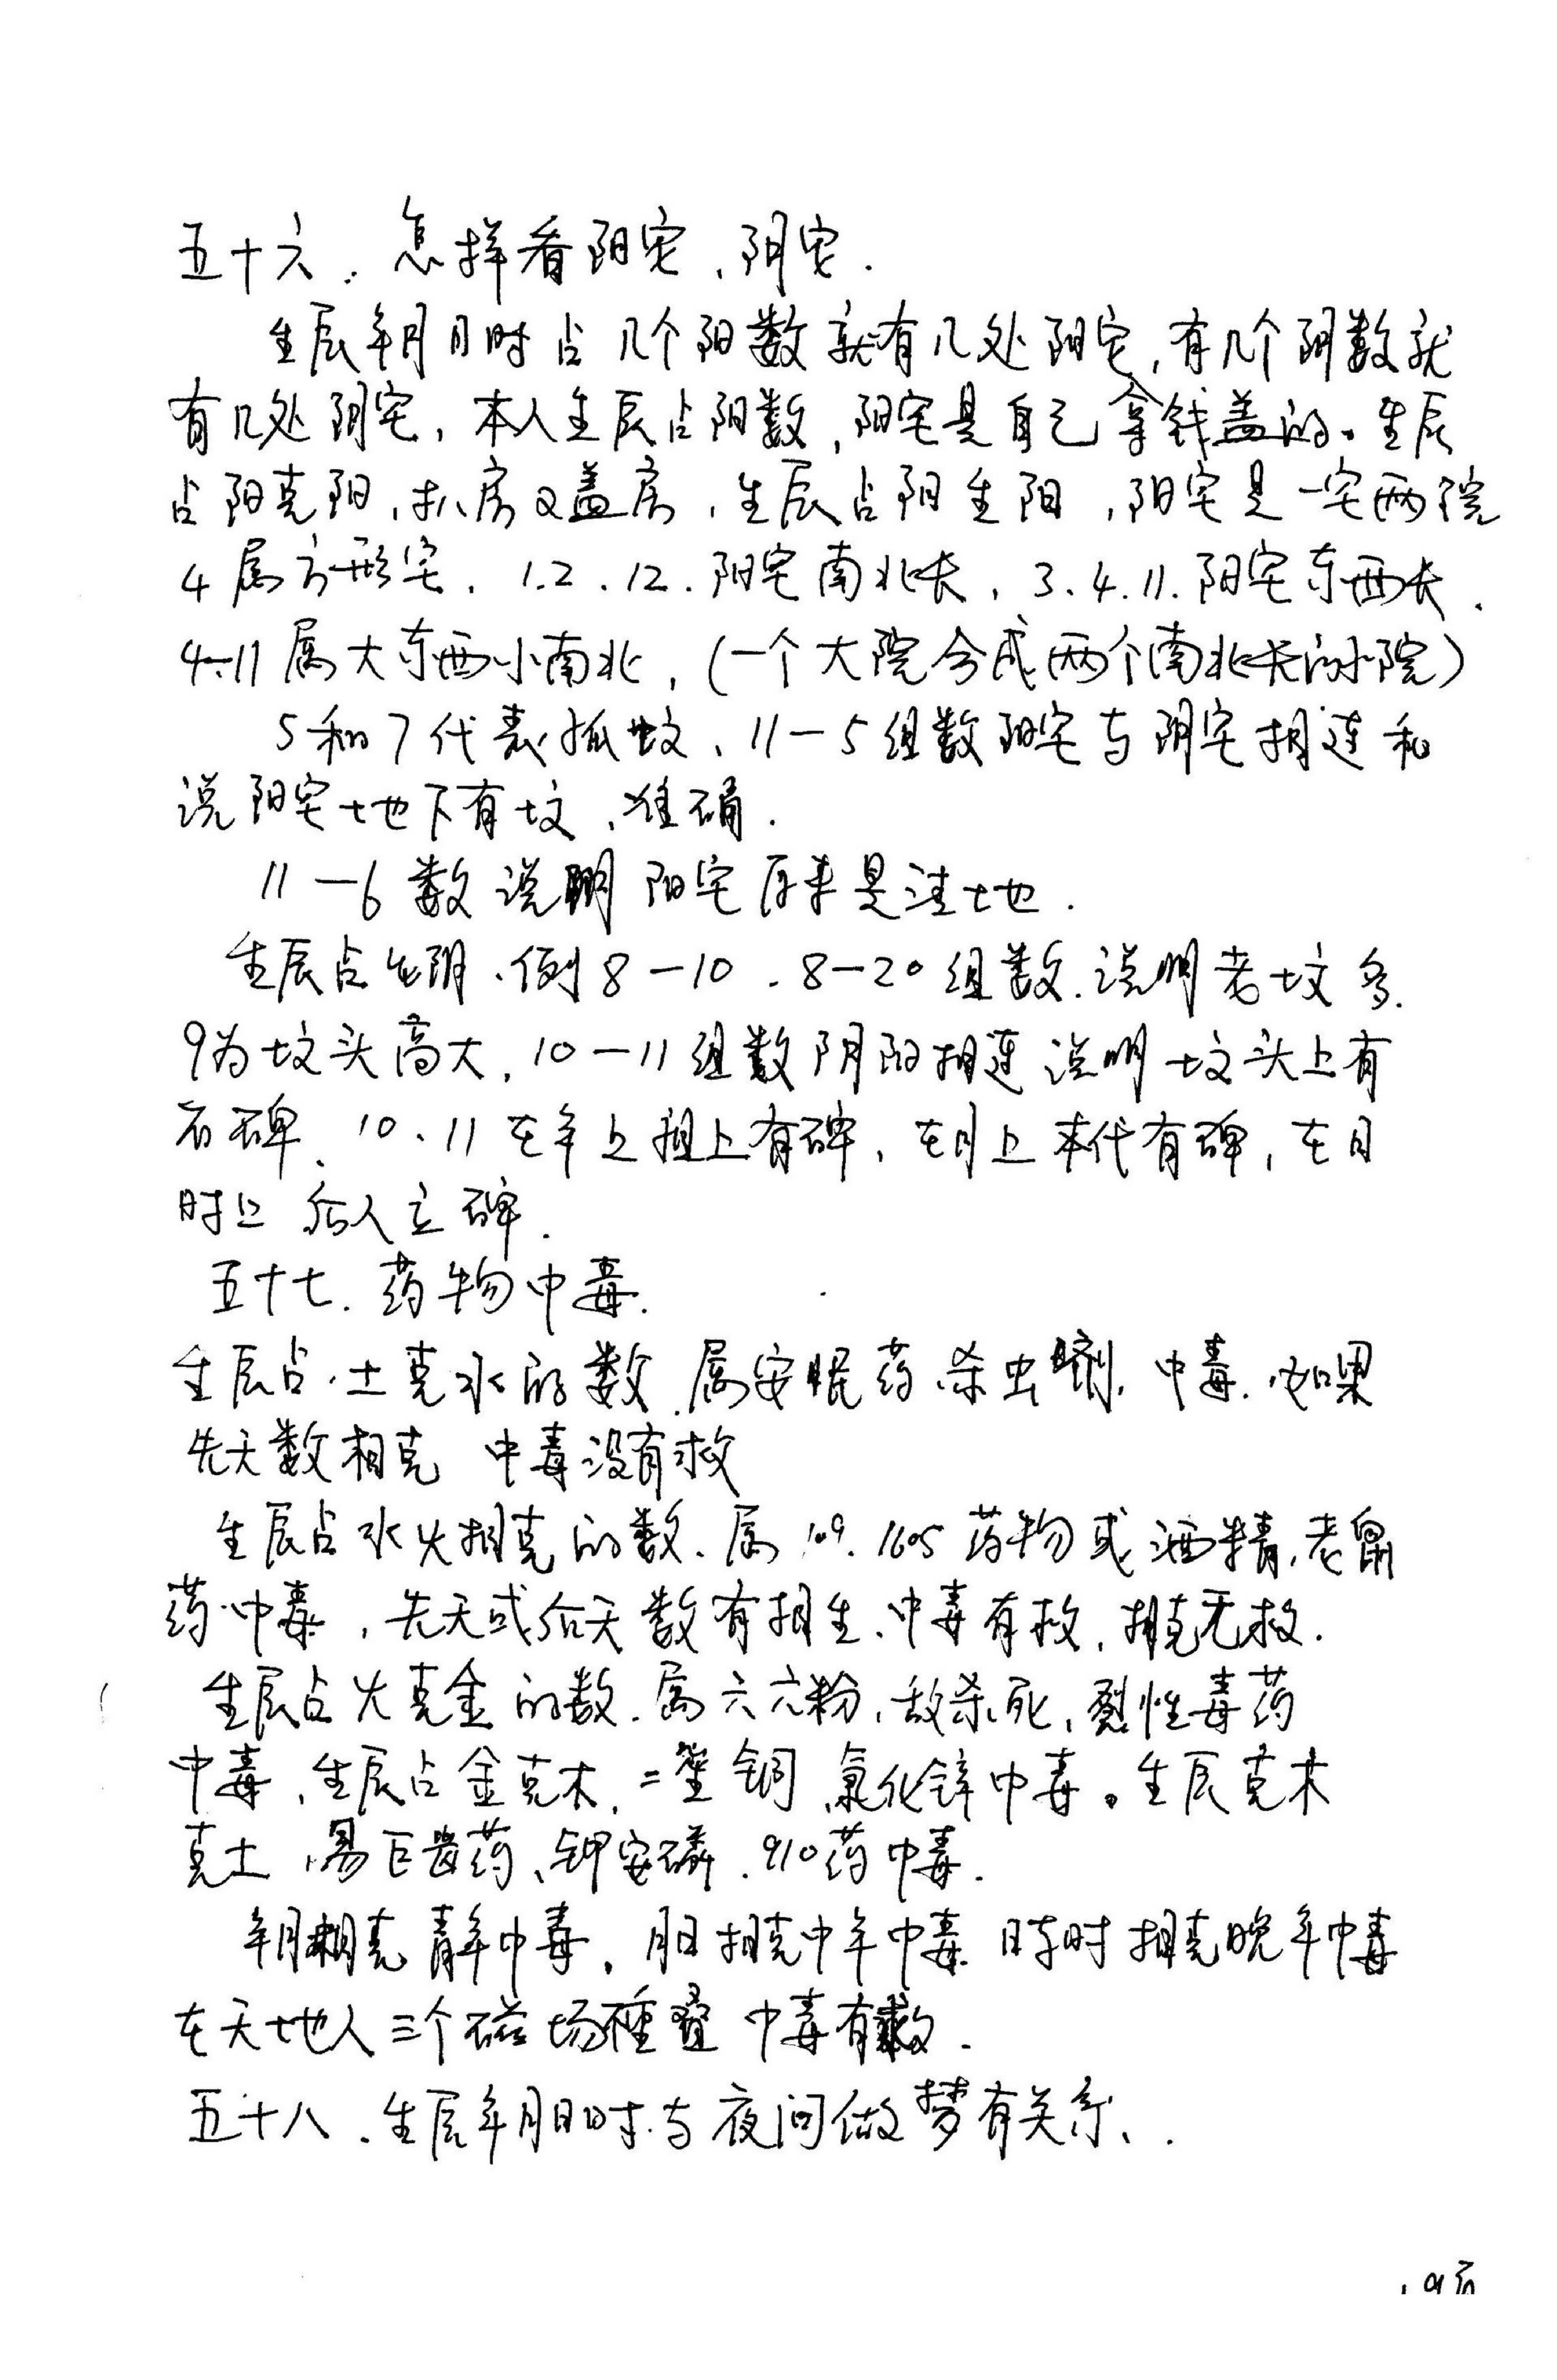 五十六．怎样看阳宅、阴宅．
生辰年月日时占几个阳数就有几处阳宅，有几个阴数就
有几处阴宅，本人生辰占阳数，阳宅是自己拿钱盖的。生辰
占阳克阳，扒房又盖房，生辰占阳生阳，阳宅是一宅两院
4属方形宅．1.2.12.阳宅南北长，3.4.11.阳宅东西长．
4-11属大东西小南北，(一个大院分成两个南北长的小院)
5和7代表孤坟、11-5组数阳宅与阴宅相连和
说阳宅土地下有坟，准确．
11-6数说明阳宅原来是洼土地．
生辰占生阴．例8-10．8-20组数．说明老坟多．
9为坟头高大，10-11组数阴阳相连说明坟头上有
石碑、10、11在年上祖上有碑，在月上本代有碑，在日
时上后人立碑．
五十七．药物中毒．
生辰占土克水的数．属安眠药．杀虫剂．中毒．如果
先天数相克 中毒没有救
生辰占水火相克的数、属109．1605药物或酒精，老鼠
药中毒，先天或后天数有相生、中毒有救，相克无救．
生辰占火克金的数．属六六粉，敌杀死，烈性毒药
中毒，生辰占金克木，二 铜、氯化锌中毒。生辰克木
克土，易巴 药、钾安磷．910药中毒．
年月相克青年中毒，月日相克中年中毒 日与时相克晚年中毒
在天地人三个磁场重叠 中毒有救．
五十八、生辰年月日时与夜间做梦有关系、．